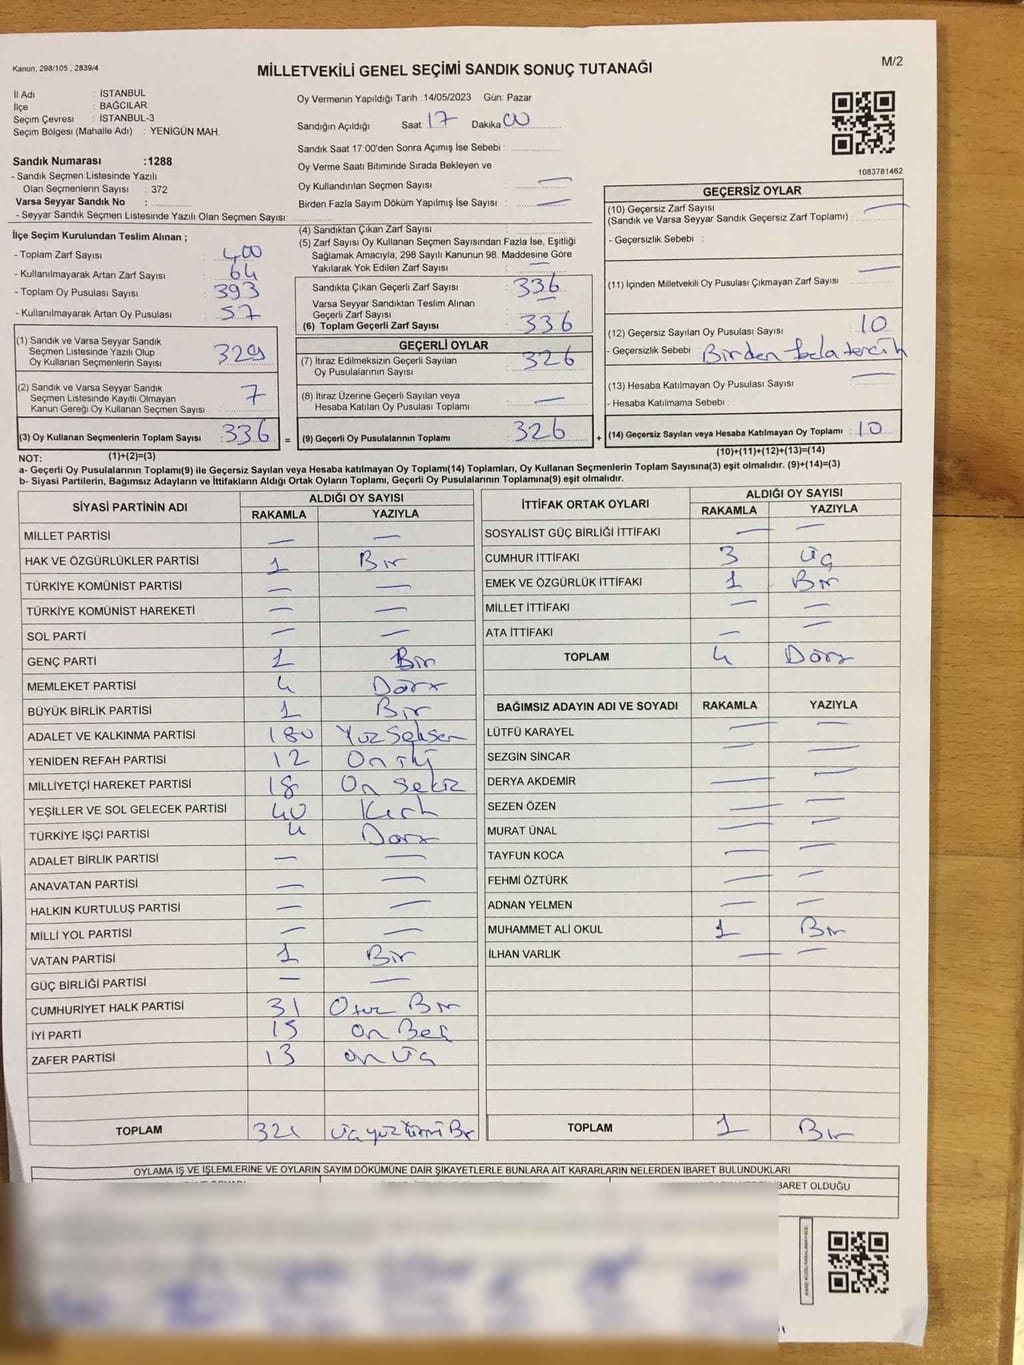 Kanun, 298/105 , 2839/4
MİLLETVEKİLİ GENEL SEÇİMİ SANDIK SONUÇ TUTANAĞI
M/2
İl Adı : İSTANBUL
İlçe : BAĞCILAR
Seçim Çevresi : İSTANBUL-3
Seçim Bölgesi (Mahalle Adı) : YENİGÜN MAH.
Sandık Numarası :1288
- Sandık Seçmen Listesinde Yazılı
Olan Seçmenlerin Sayısı : 372
Varsa Seyyar Sandık No :
- Seyyar Sandık Seçmen Listesinde Yazılı Olan Seçmen Sayısı:
Oy Vermenin Yapıldığı Tarih :14/05/2023 Gün: Pazar
Sandığın Açıldığı Saat: 17 Dakika 00
Sandık Saat 17:00'den Sonra Açımış İse Sebebi :
Oy Verme Saati Bitiminde Sırada Bekleyen ve
Oy Kullandırılan Seçmen Sayısı : —
Birden Fazla Sayım Döküm Yapılmış İse Sayısı : —
1083781462
İlçe Seçim Kurulundan Teslim Alınan ;
- Toplam Zarf Sayısı : 400
- Kullanılmayarak Artan Zarf Sayısı : 64
- Toplam Oy Pusulası Sayısı : 393
- Kullanılmayarak Artan Oy Pusulası : 57
(1) Sandık ve Varsa Seyyar Sandık
Seçmen Listesinde Yazılı Olup
Oy Kullanan Seçmenlerin Sayısı : 329
(2) Sandık ve Varsa Seyyar Sandık
Seçmen Listesinde Kayıtlı Olmayan
Kanun Gereği Oy Kullanan Seçmen Sayısı : 7
(3) Oy Kullanan Seçmenlerin Toplam Sayısı : 336 =
(4) Sandıktan Çıkan Zarf Sayısı :
(5) Zarf Sayısı Oy Kullanan Seçmen Sayısından Fazla İse, Eşitliği
Sağlamak Amacıyla, 298 Sayılı Kanunun 98. Maddesine Göre
Yakılarak Yok Edilen Zarf Sayısı : —
Sandıkta Çıkan Geçerli Zarf Sayısı : 336
Varsa Seyyar Sandıktan Teslim Alınan
Geçerli Zarf Sayısı : —
(6) Toplam Geçerli Zarf Sayısı : 336
GEÇERLİ OYLAR
(7) İtiraz Edilmeksizin Geçerli Sayılan
Oy Pusulalarının Sayısı : 326
(8) İtiraz Üzerine Geçerli Sayılan veya
Hesaba Katılan Oy Pusulası Toplamı : —
(9) Geçerli Oy Pusulalarının Toplamı : 326 +
GEÇERSİZ OYLAR
(10) Geçersiz Zarf Sayısı
(Sandık ve Varsa Seyyar Sandık Geçersiz Zarf Toplamı) : —
- Geçersizlik Sebebi :
(11) İçinden Milletvekili Oy Pusulası Çıkmayan Zarf Sayısı : —
(12) Geçersiz Sayılan Oy Pusulası Sayısı : 10
- Geçersizlik Sebebi : Birden fazla tercih
(13) Hesaba Katılmayan Oy Pusulası Sayısı : —
- Hesaba Katılmama Sebebi :
(14) Geçersiz Sayılan veya Hesaba Katılmayan Oy Toplamı : 10
NOT: (1)+(2)=(3)
(10)+(11)+(12)+(13)=(14)
a- Geçerli Oy Pusulalarının Toplamı(9) ile Geçersiz Sayılan veya Hesaba katılmayan Oy Toplamı(14) Toplamları, Oy Kullanan Seçmenlerin Toplam Sayısına(3) eşit olmalıdır. (9)+(14)=(3)
b- Siyasi Partilerin, Bağımsız Adayların ve İttifakların Aldığı Ortak Oyların Toplamı, Geçerli Oy Pusulalarının Toplamına(9) eşit olmalıdır.
SİYASİ PARTİNİN ADI ALDIĞI OY SAYISI
RAKAMLA YAZIYLA
MİLLET PARTİSİ — —
HAK VE ÖZGÜRLÜKLER PARTİSİ 1 Bir
TÜRKİYE KOMÜNİST PARTİSİ — —
TÜRKİYE KOMÜNİST HAREKETİ — —
SOL PARTİ — —
GENÇ PARTİ 1 Bir
MEMLEKET PARTİSİ 4 Dört
BÜYÜK BİRLİK PARTİSİ 1 Bir
ADALET VE KALKINMA PARTİSİ 180 Yüz Seksen
YENİDEN REFAH PARTİSİ 12 On iki
MİLLİYETÇİ HAREKET PARTİSİ 18 On Sekiz
YEŞİLLER VE SOL GELECEK PARTİSİ 40 Kırk
TÜRKİYE İŞÇİ PARTİSİ 4 Dört
ADALET BİRLİK PARTİSİ — —
ANAVATAN PARTİSİ — —
HALKIN KURTULUŞ PARTİSİ — —
MİLLİ YOL PARTİSİ — —
VATAN PARTİSİ 1 Bir
GÜÇ BİRLİĞİ PARTİSİ — —
CUMHURİYET HALK PARTİSİ 31 Otuz Bir
İYİ PARTİ 15 On Beş
ZAFER PARTİSİ 13 on üç
TOPLAM 321 üç yüz Yirmi Bir
İTTİFAK ORTAK OYLARI ALDIĞI OY SAYISI
RAKAMLA YAZIYLA
SOSYALİST GÜÇ BİRLİĞİ İTTİFAKI — —
CUMHUR İTTİFAKI 3 üç
EMEK VE ÖZGÜRLÜK İTTİFAKI 1 Bir
MİLLET İTTİFAKI — —
ATA İTTİFAKI — —
TOPLAM 4 Dört
BAĞIMSIZ ADAYIN ADI VE SOYADI RAKAMLA YAZIYLA
LÜTFÜ KARAYEL — —
SEZGİN SİNCAR — —
DERYA AKDEMİR — —
SEZEN ÖZEN — —
MURAT ÜNAL — —
TAYFUN KOCA — —
FEHMİ ÖZTÜRK — —
ADNAN YELMEN — —
MUHAMMET ALİ OKUL 1 Bir
İLHAN VARLIK — —
TOPLAM 1 Bir
OYLAMA İŞ VE İŞLEMLERİNE VE OYLARIN SAYIM DÖKÜMÜNE DAİR ŞİKAYETLERLE BUNLARA AİT KARARLARIN NELERDEN İBARET BULUNDUKLARI
BARET OLDUĞU